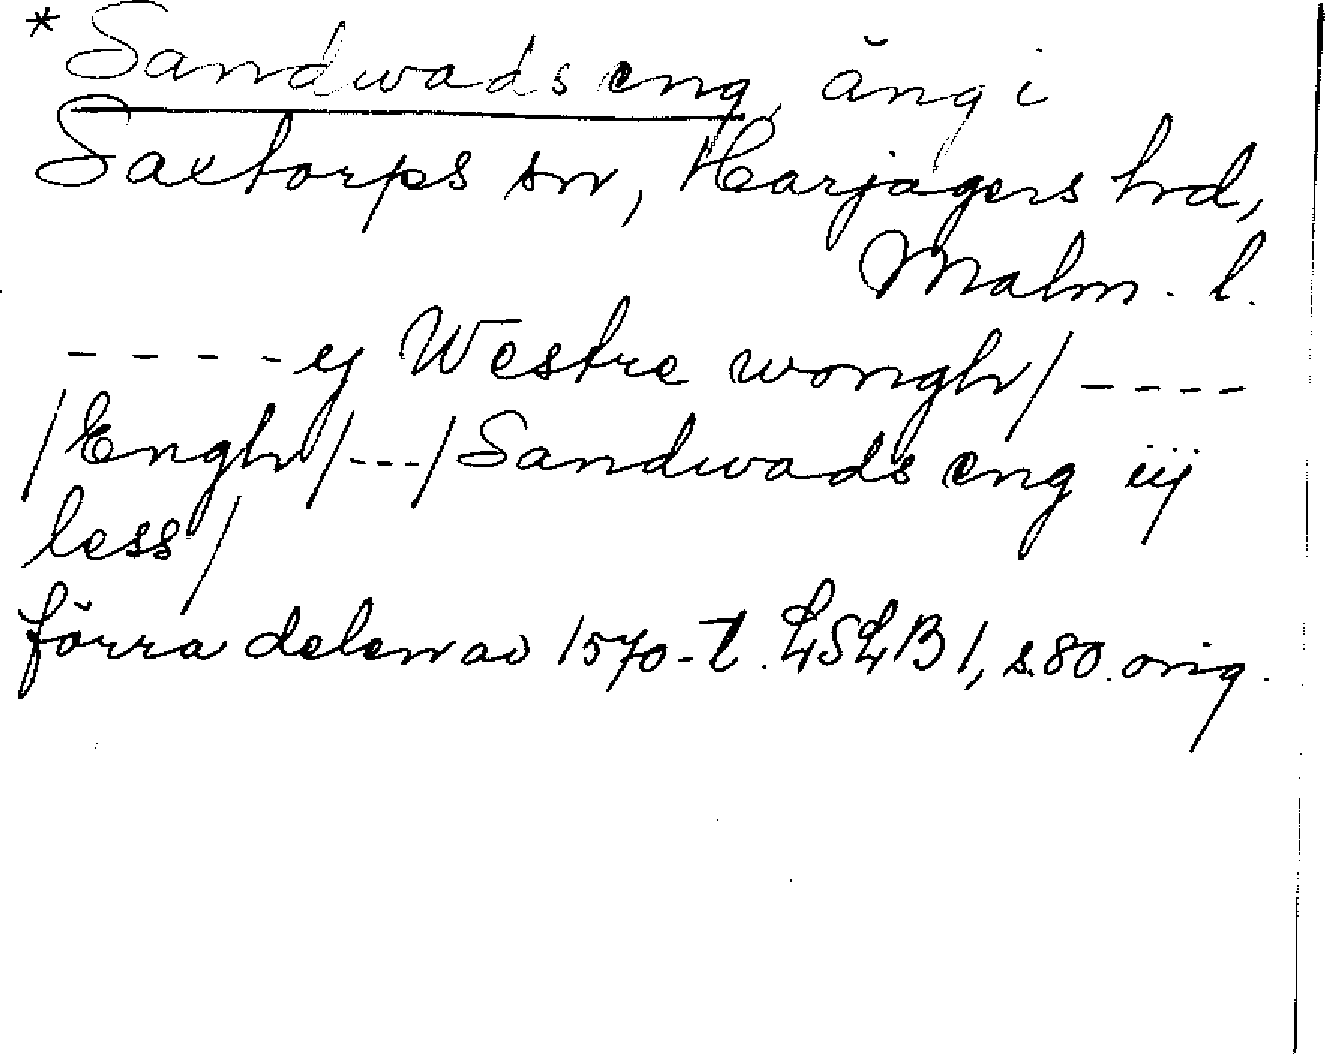 * Sandwads eng, äng i
Saxtorps sn, Harjagers hrd,
Malm. l.
- - - - ij Westre wongh/ - - - -
/Engh/---/Sandwads eng iij
less/
förra delen av 1570-t. LSLB 1, s. 80. orig.